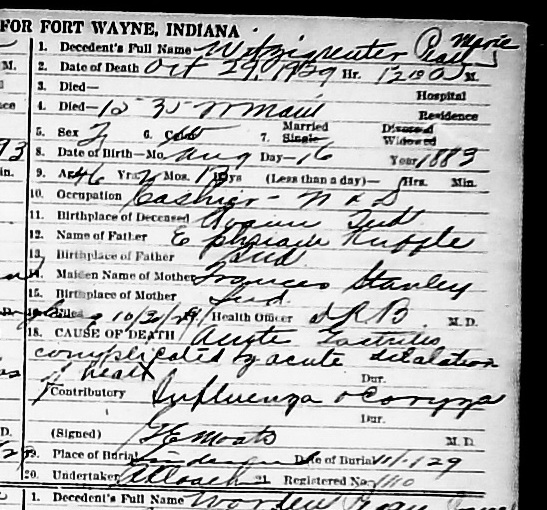 FOR FORT WAYNE, INDIANA
1. Decedent's Full Name Marie
2. Date of Death Oct 29, 1929 Hr. M.
3. Died— Hospital
4. Died— Residence
5. Sex F 6. Color W 7. Married Single Divorced Widowed
8. Date of Birth—Mo. Aug Day—16 Year 1883
9. Age 46 Yrs. 2 Mos. Dys (Less than a day)— Hrs. Min.
10. Occupation Cashier—
11. Birthplace of Deceased Ind
12. Name of Father Ephraim Ruffle
13. Birthplace of Father Ind
14. Maiden Name of Mother Frances Stanley
15. Birthplace of Mother Ind.
Filed 10/31/29 Health Officer M. D.
18. CAUSE OF DEATH Acute Gastritis
complicated by acute dilalation
heart Dur.
Contributory Influenza & Coryza
Dur.
(Signed) G E Moats M. D.
19. Place of Burial Lindenwood Date of Burial 11/1-129
20. Undertaker 21 Registered No. 1110
1. Decedent's Full Name Worden